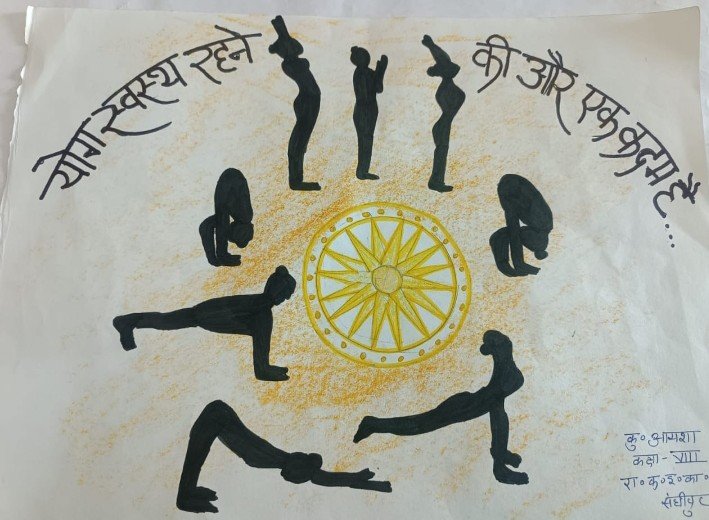 योग स्वस्थ रहने की ओर एक कदम है...
कु० आयशा
कक्षा - VIII
रा० क० इ० का०